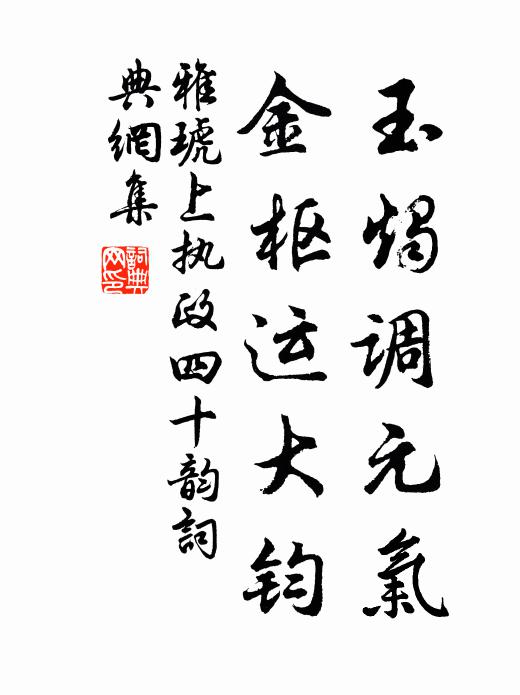 玉烛调元氣
金枢运大钧
雅琥上执政四十韵詞
典網集
詞典
网印